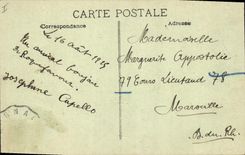 CARTE POSTALE
Correspondance
Adresse
Le 16 août 1915
Un amical bonjour
Joséphine Capello
Mademoiselle
Marguerite Appostolie
79 Cours Lieutaud 78
Marseille
B. du Rh.